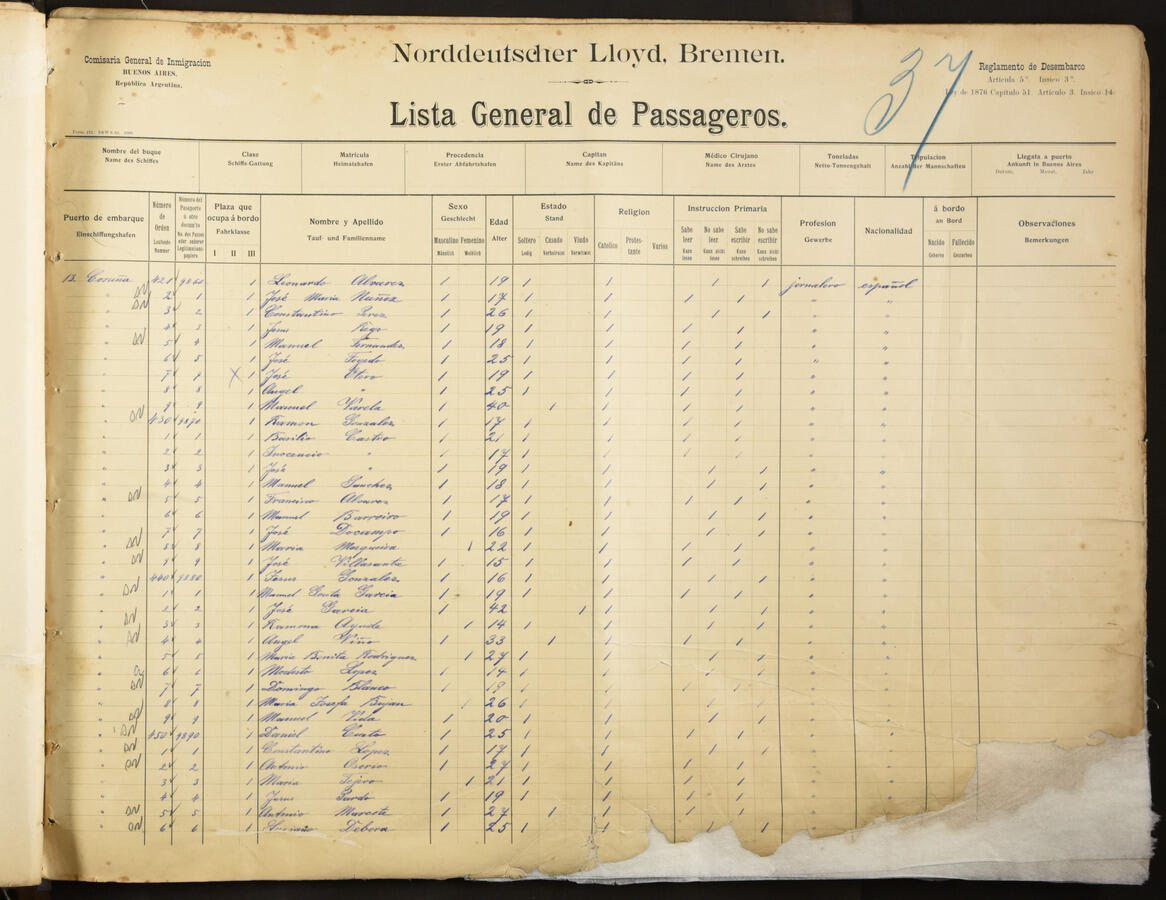 Comisaria General de Inmigracion
BUENOS AIRES.
República Argentina.
Norddeutscher Lloyd, Bremen.
Lista General de Passageros.
37
Reglamento de Desembarco
Articula 5º. Insico 3º.
Ley de 1876 Capítulo 51. Artículo 3. Insico 14.
Nombre del buque
Name des Schiffes
Clase
Schiffs-Gattung
Matrícula
Heimatshafen
Procedencia
Erster Abfahrtshafen
Capitan
Name des Kapitäns
Médico Cirujano
Name des Arztes
Toneladas
Netto-Tonnengehalt
Tripulacion
Anzahl der Mannschaften
Llegata a puerto
Ankunft in Buenos Aires
Datum. Monat. Jahr
Puerto de embarque
Einschiffungshafen
Número de Orden
Laufende Nummer
Plaza que ocupa á bordo
Fahrklasse
I II III
Nombre y Apellido
Tauf- und Familienname
Sexo
Geschlecht
Masculino Femenino
Männlich Weiblich
Edad
Alter
Estado
Stand
Soltero Casado Viudo
Ledig Verheiratet Verwitwet
Religion
Catolica Protestante Varios
Instruccion Primaria
Sabe leer No sabe leer Sabe escribir No sabe escribir
Kann lesen Kann nicht lesen Kann schreiben Kann nicht schreiben
Profesion
Gewerbe
Nacionalidad
á bordo
an Bord
Nacido Fallecido
Geboren Gestorben
Observaciones
Bemerkungen
13. Coruña 421 9860 1 Leonardo Alvarez 1 19 1 1 1 1 jornalero español
" 2 1 1 José Maria Nuñez 1 17 1 1 1 1 " "
" 3 2 1 Constantino Perez 1 26 1 1 1 1 " "
" 4 3 1 Jesus Rego 1 19 1 1 1 1 " "
" 5 4 1 Manuel Fernandez 1 18 1 1 1 1 " "
" 6 5 1 José 1 25 1 1 1 1 " "
" 7 1 José Otero 1 19 1 1 1 1 " "
" 8 8 1 Angel " 1 25 1 1 1 1 " "
" 9 9 1 Manuel Varela 1 40 1 1 1 1 " "
" 430 9870 1 Ramon Gonzalez 1 17 1 1 1 1 " "
" 1 1 1 Basilio Castro 1 21 1 1 1 1 " "
" 2 2 1 Inocencio " 1 17 1 1 1 1 " "
" 3 3 1 José " 1 19 1 1 1 1 " "
" 4 4 1 Manuel Sanchez 1 18 1 1 1 1 " "
" 5 5 1 Francisco Alvarez 1 17 1 1 1 1 " "
" 6 6 1 Manuel Barreiro 1 19 1 1 1 1 " "
" 7 7 1 José Docampo 1 16 1 1 1 1 " "
" 8 8 1 Maria Mosqueira 1 22 1 1 1 1 " "
" 9 9 1 José Villasanta 1 15 1 1 1 1 " "
" 440 9880 1 Jesus Gonzalez 1 16 1 1 1 1 " "
" 1 1 1 Manuel Garcia 1 19 1 1 1 1 " "
" 2 2 1 José Garcia 1 42 1 1 1 1 " "
" 3 3 1 Ramona 1 14 1 1 1 1 " "
" 4 4 1 Angel Viño 1 33 1 1 1 1 " "
" 5 5 1 Maria Benita Rodriguez 1 27 1 1 1 1 " "
" 6 6 1 Modesto Lopez 1 14 1 1 1 1 " "
" 7 7 1 Domingo Blanco 1 19 1 1 1 1 " "
" 8 8 1 Maria Josefa Bujan 1 26 1 1 1 1 " "
" 9 9 1 Manuel 1 20 1 1 1 1 " "
" 450 9890 1 Daniel 1 25 1 1 1 1 " "
" 1 1 1 Constantino Lopez 1 17 1 1 1 1 "
" 2 2 1 Antonio Osorio 1 27 1 1 1 1 "
" 3 3 1 Maria 1 21 1 1 1 1 "
" 4 4 1 Jesus Pardo 1 19 1 1 1 1 "
" 5 5 1 Antonio 1 27 1 1 1 1
" 6 6 1 1 25 1 1 1 1